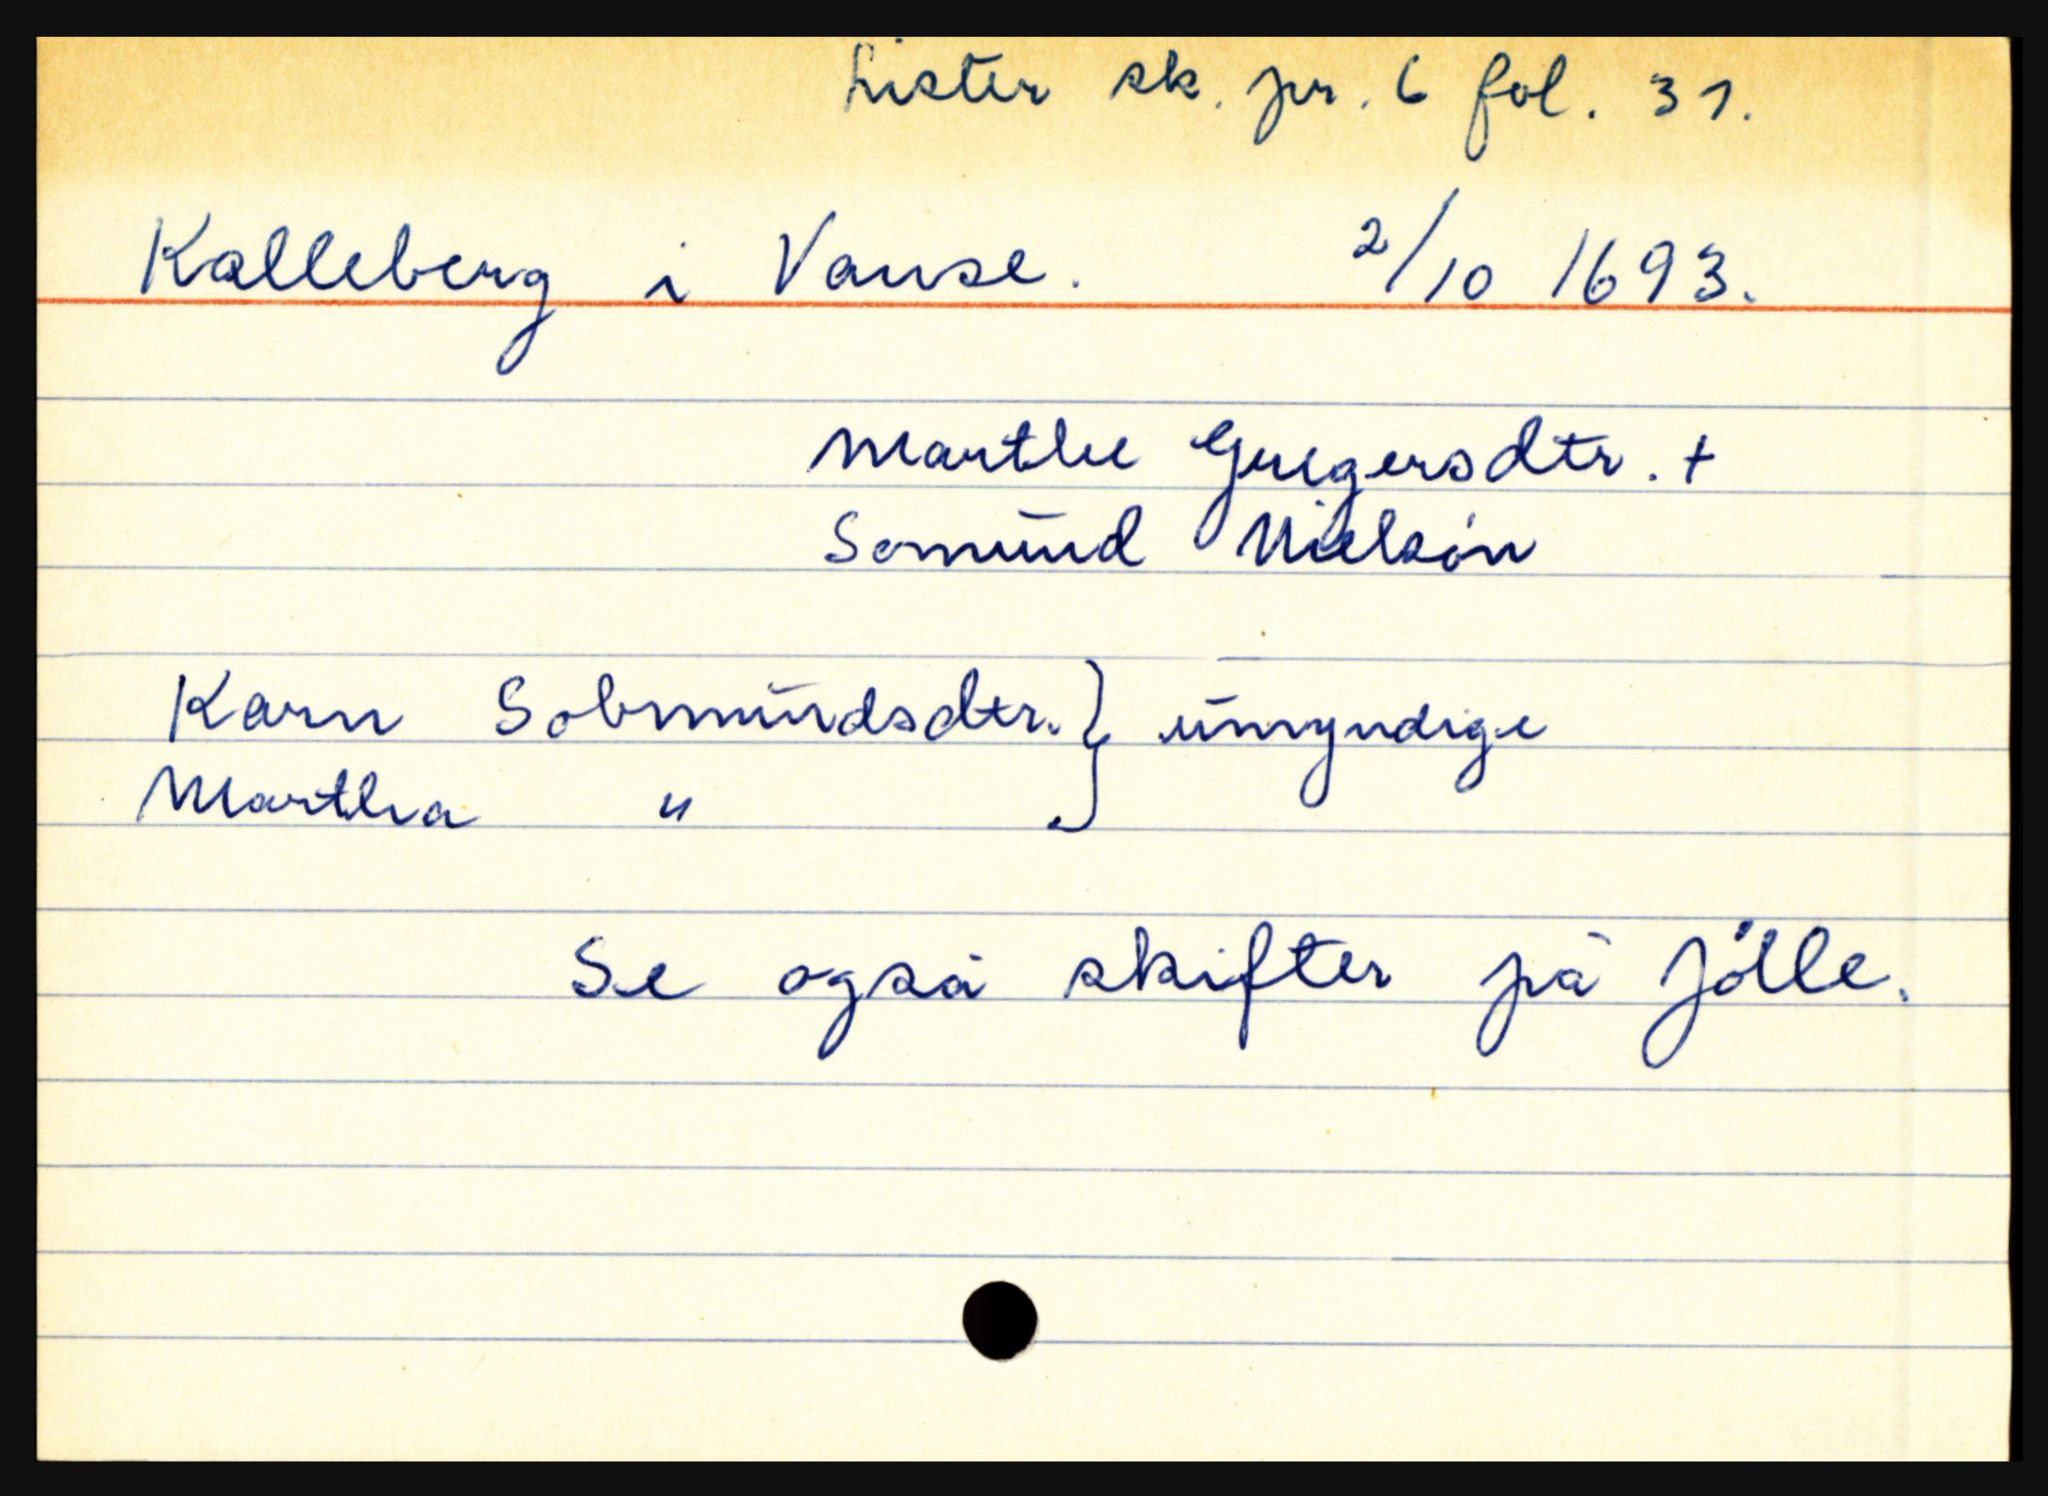 Lister sk. pr. 6 fol. 31.
Kalleberg i Vanse. 2/10 1693.
Marthe Gregersdtr. +
Somund Nielsøn
Karn Sobmundsdtr. } umyndige
Martha "
Se også skifter på Jölle.